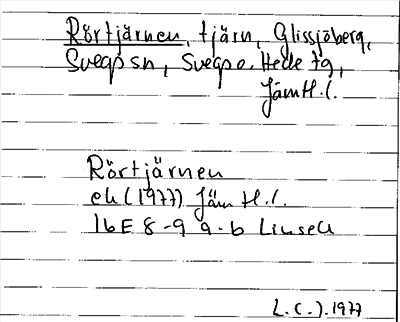 Rörtjärnen, tjärn, Glissjöberg,
Svegs sn, Svegs o. Hede tg,
Jämt l.
Rörtjärnen
ek (1977) Jämt l.
16E 8-9 a-b Linsell
L.C.J. 1977